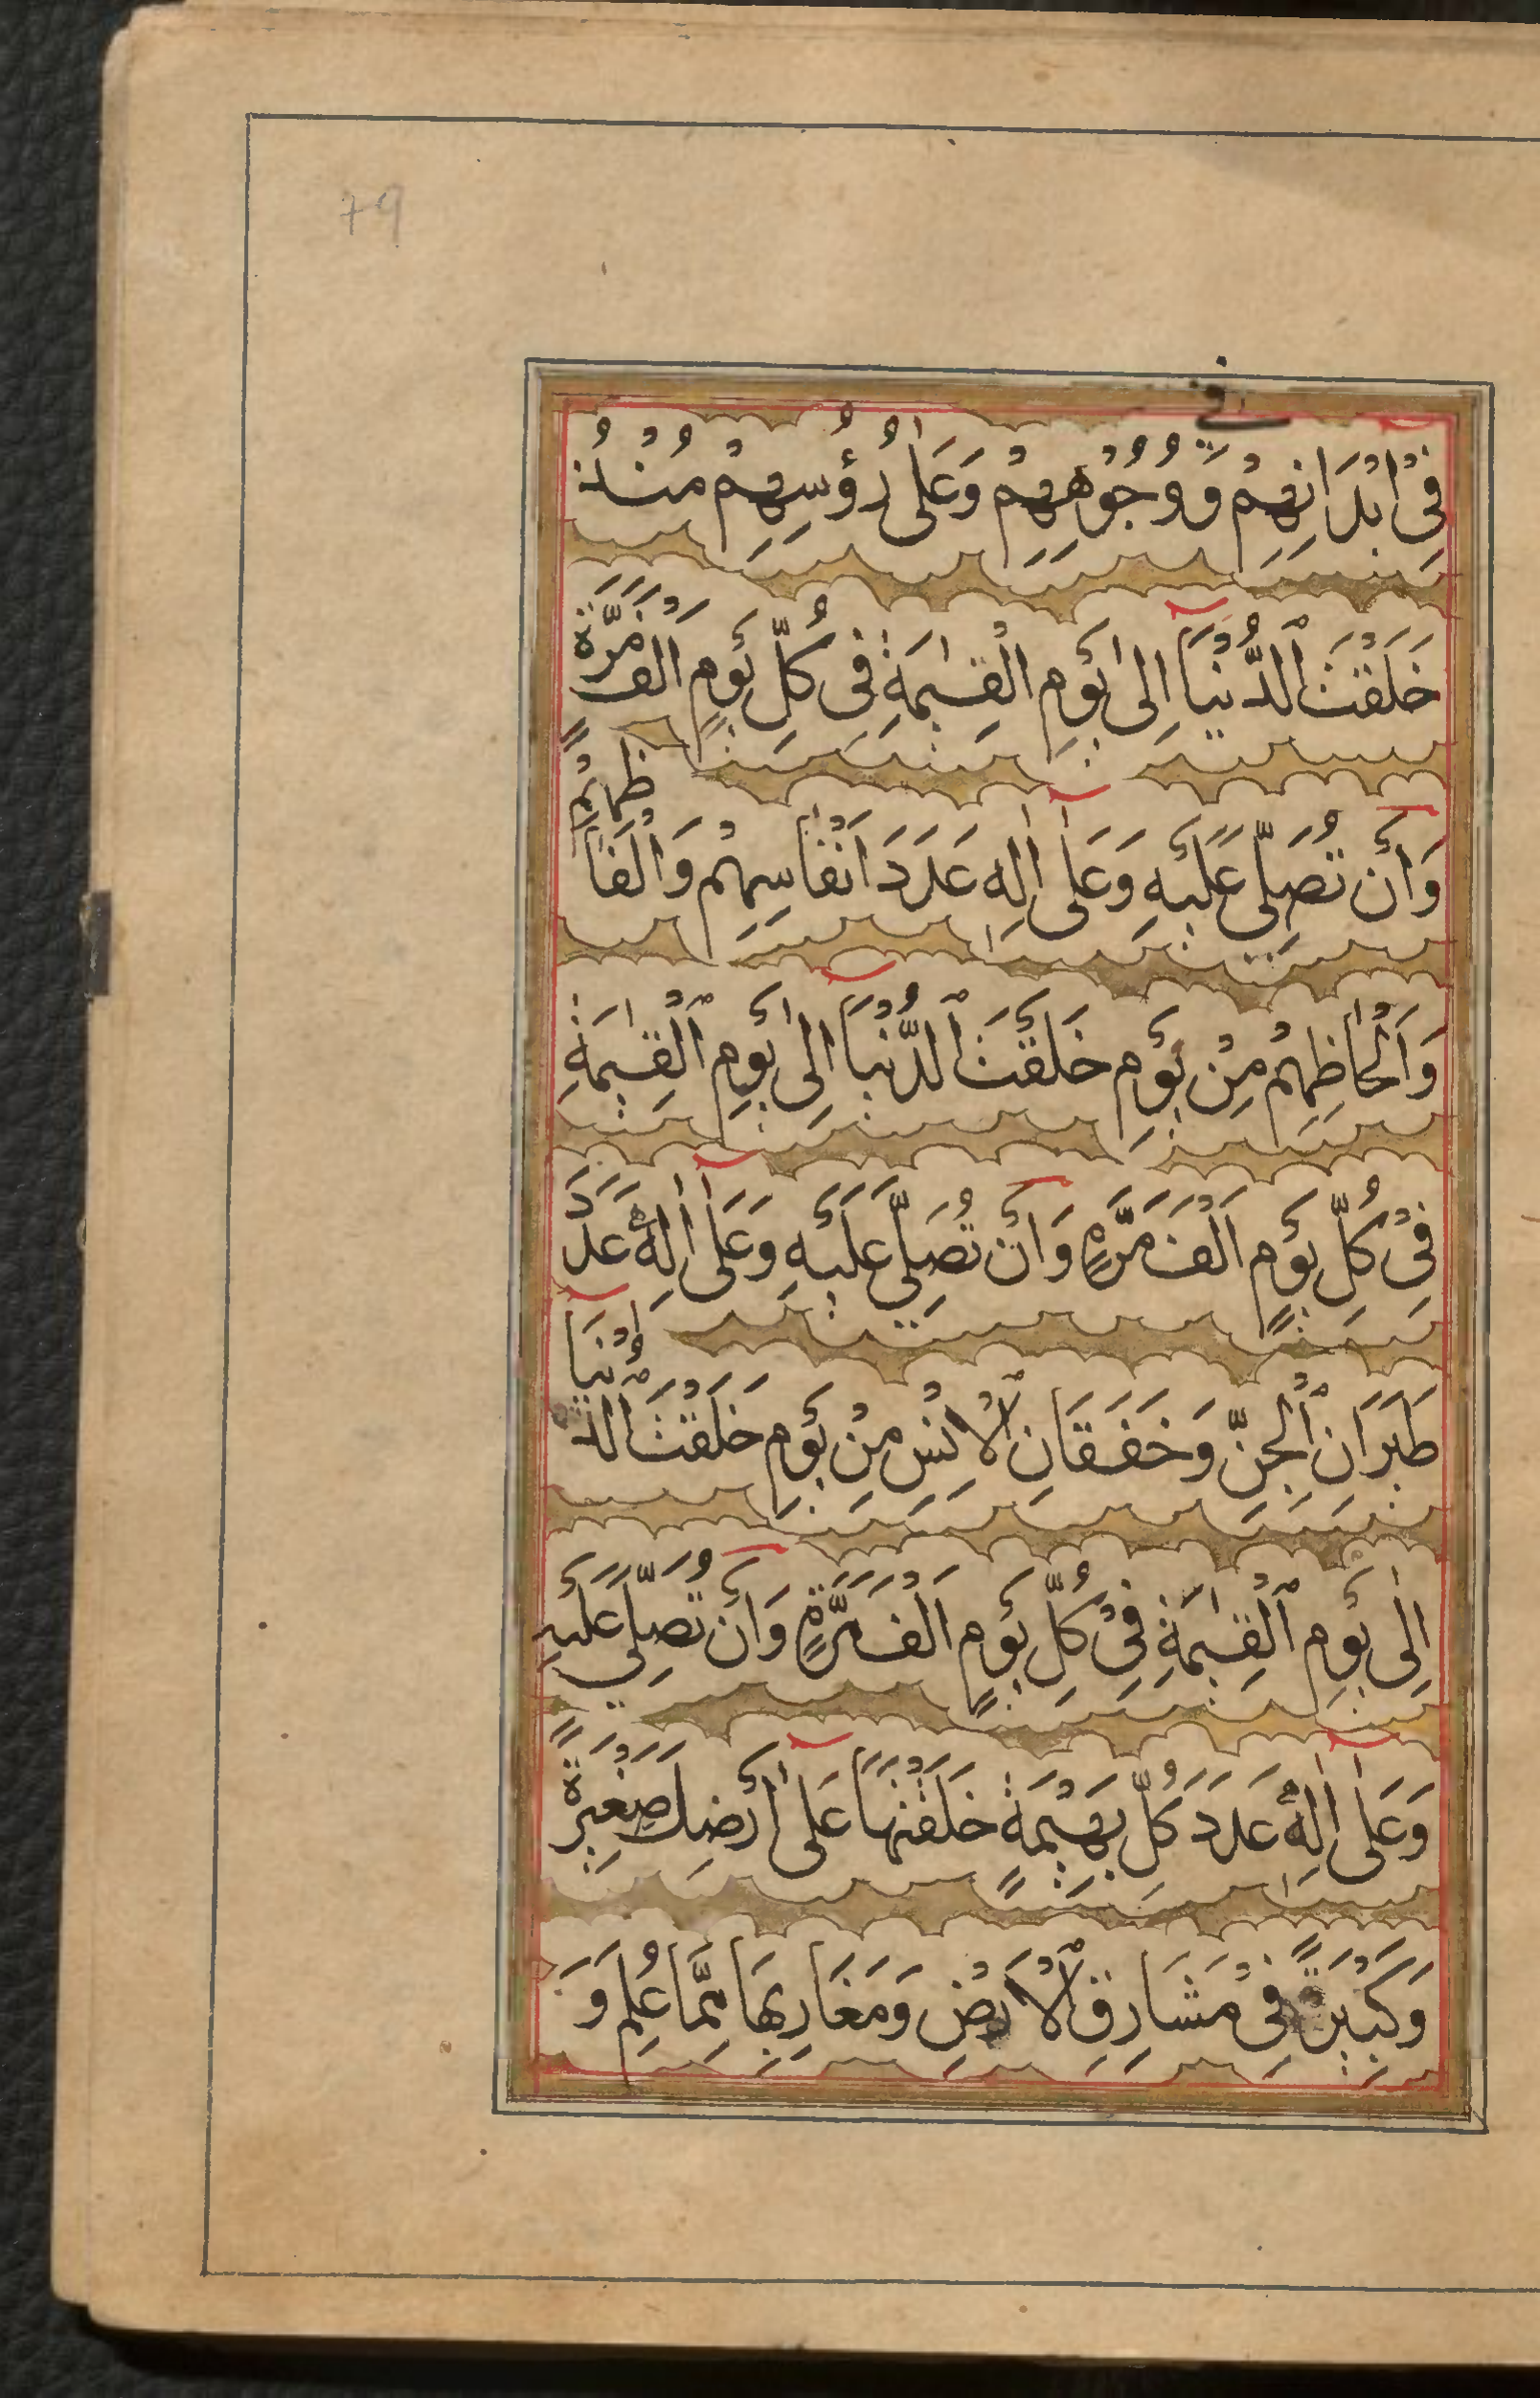 79
في
فِىْ اَبْدَانِهِمْ وَّ وُجُوْهِهِمْ وَعَلٰى رُؤُسِهِمْ مُنْذُ
خَلَقْتَ الدُّنْيَآ اِلٰى يَوْمِ الْقِيٰمَةِ فِى كُلِّ يَوْمٍ اَلْفَ مَرَّةٍ
وَاَنْ تُصَلِّىَ عَلَيْهِ وَعَلٰٓى اٰلِهِ عَدَدَ اَنْفَاسِهِمْ وَاَلْفَاظِهِمْ
وَاَلْحَاظِهِمْ مِنْ يَوْمِ خَلَقْتَ الدُّنْيَآ اِلٰى يَوْمِ الْقِيٰمَةِ
فِىْ كُلِّ يَوْمٍ اَلْفَ مَرَّةٍ وَاَنْ تُصَلِّىَ عَلَيْهِ وَعَلٰٓى اٰلِهٖ عَدَدَ
طَيَرَانِ الْجِنِّ وَخَفَقَانِ الْاِنْسِ مِنْ يَوْمِ خَلَقْتَ الدُّنْيَآ
اِلٰى يَوْمِ الْقِيٰمَةِ فِىْ كُلِّ يَوْمٍ اَلْفَ مَرَّةٍ وَاَنْ تُصَلِّىَ عَلَيْهِ
وَعَلٰٓى اٰلِهٖ عَدَدَ كُلِّ بَهِيْمَةٍ خَلَقْتَهَا عَلٰٓى اَرْضِكَ صَغِيْرَةً
وَكَبِيْرَةً فِىْ مَشَارِقِ الْاَرْضِ وَمَغَارِبِهَا مِمَّا عُلِمَ وَ